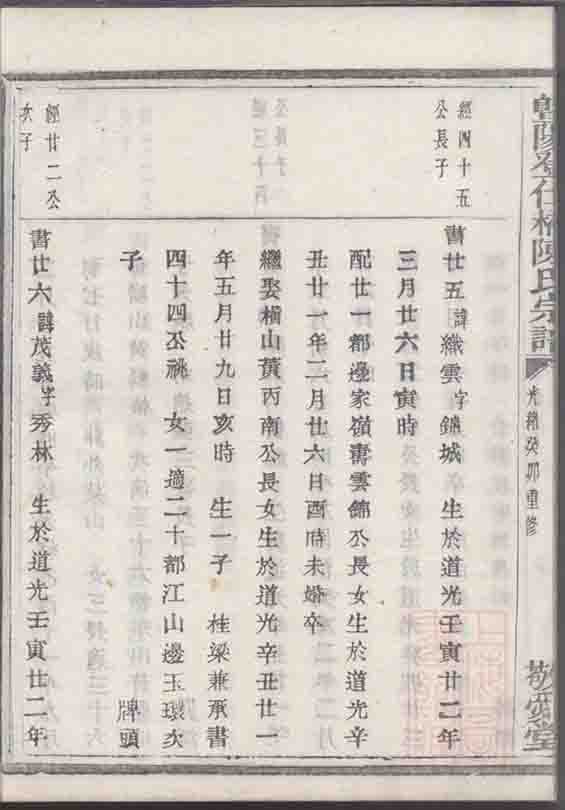 暨陽孝仕橋陳氏宗譜
光緒癸卯重修
敬愛堂
經四十五
公長子
書廿五諱織雲字錦城 生於道光壬寅廿二年
三月廿六日寅時
配廿一都邊家嶺壽雲錦公長女生於道光辛
丑廿一年二月廿六日酉時未婚卒
繼娶橫山黃丙南公長女生於道光辛丑廿一
年五月廿九日亥時 生一子 桂梁兼承書
四十四公祧 女一適二十都江山邊玉環次
子 牌頭
經廿二公
次子
書廿六諱茂義字秀林 生於道光壬寅廿二年